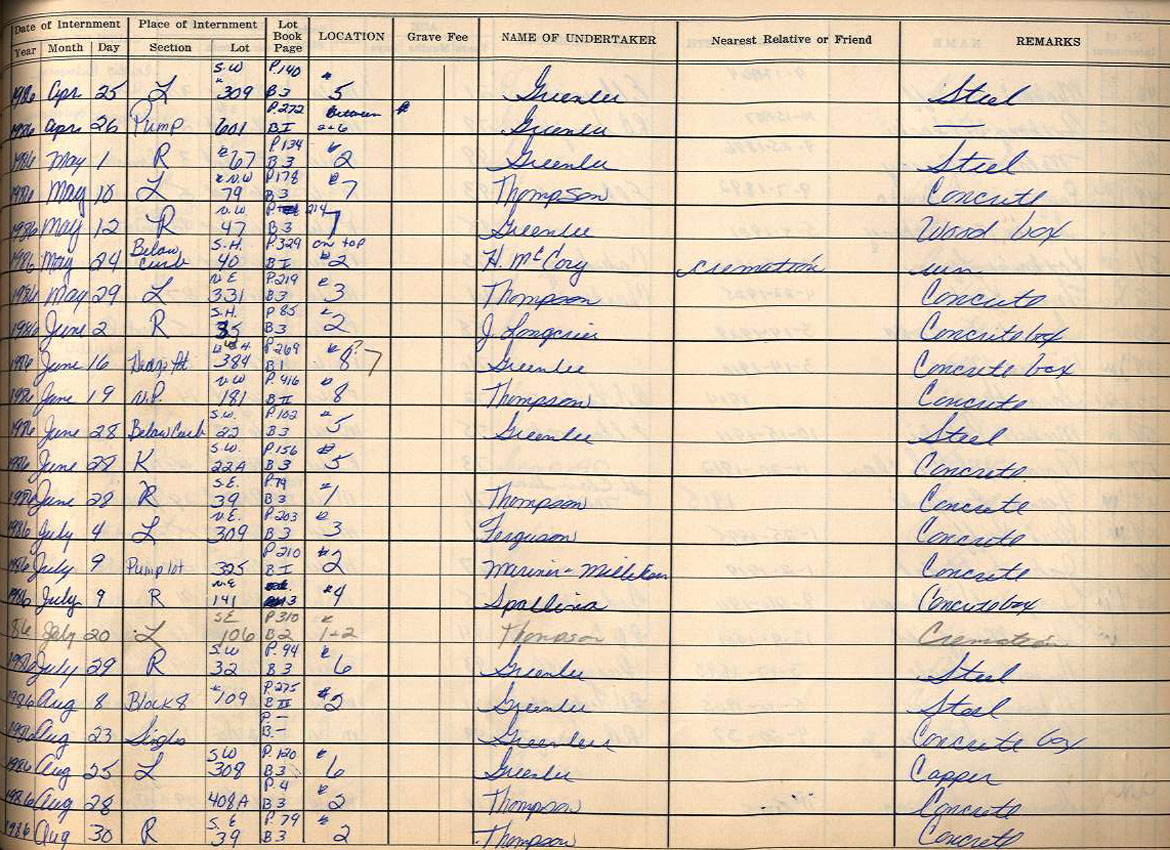 Date of Internment Place of Internment Lot Book Page LOCATION Grave Fee NAME OF UNDERTAKER Nearest Relative or Friend REMARKS
Year Month Day Section Lot
1986 Apr 25 L S.W # 309 P.140 B3 # 5 Greenlee Steel
1986 Apr 26 Pump 601 P.272 B I Between 2+6 Greenlee —
1986 May 1 R # 67 P134 B3 # 2 Greenlee Steel
1986 May 10 L N.W 79 P178 B3 # 7 Thompson Concrete
1986 May 12 R N.W. 47 P 214 B3 7 Greenlee Wood box
1986 May 24 Below Curb S.H. 40 P.329 B I on top #2 H. McCory cremation urn
1986 May 29 L N E 331 P.219 B3 # 3 Thompson Concrete
1986 June 2 R S.H. 35 P 85 B3 # 2 J. Concrete box
1986 June 16 384 P.269 B1 # 8 ? 7 Greenlee Concrete box
1986 June 19 N.P. N.W 181 P. 416 B II # 8 Thompson Concrete
1986 June 28 Below Curb S.W. 22 P.102 B3 # 5 Greenlee Steel
1986 June 28 K S.W. 22A P.156 B 3 # 5 Concrete
1986 June 28 R S.E. 39 P.79 B3 # 1 Thompson Concrete
1986 July 4 L N.E. 309 P.203 B 3 # 3 Ferguson Concrete
1986 July 9 Pump lot 325 P.210 B I #2 Concrete
1986 July 9 R N.E 141 3 #4 Spallina Concrete box
86 July 20 L S.E 106 P.310 B2 # 1-2 Thompson Cremation
1986 July 29 R S.W 32 P. 94 B 3 # 6 Greenlee Steel
1986 Aug 8 Block 8 # 109 P.275 B II #2 Greenlee Steel
1986 Aug 23 Singles P - B.- Greenlee Concrete box
1986 Aug 25 L S.W 308 P. 120 B3 # 6 Greenlee Copper
1986 Aug 28 408A P. 4 B 3 # 2 Thompson Concrete
1986 Aug 30 R S. E 39 P. 79 B3 # 2 Thompson Concrete